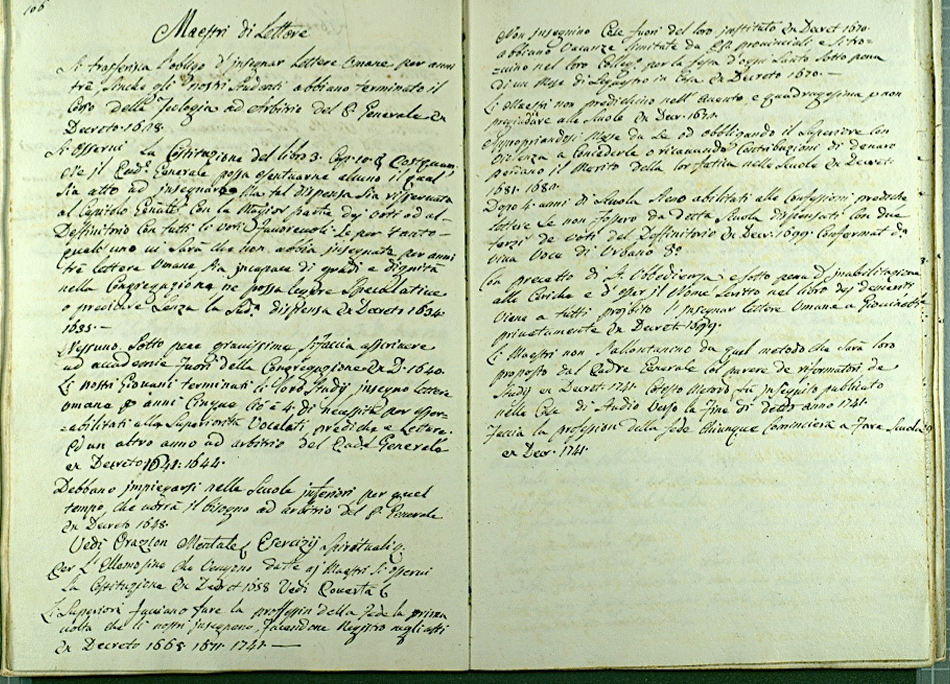 106
Maestri di Lettere
Si trasferisca l'obligo d'insegnar lettere Umane per anni
trè, finche gli nostri Studenti abbiano terminato il
Corso della Teologia ad arbitrio del P. Generale Ex
Decreto 1618.
Si osservi la Costituzione del libro 3. Cap. 10.
che il Rmo. Generale possa esentuarne alcuno il qual
sia atto ad insegnare Ma tal dispensa sia risservata
al Capitolo Genāle Con la Maggior parte de voti od al
Deffinitorio con tutti li voti favorevoli. Se per tanto
qualch'uno vi sarà che non abbia insegnato per anni
trè lettere Umane sia incapace di gradi e dignità
nella Congregazione ne possa leggere Speculative
o predicare senza la Sudᵃ dispensa Ex Decreto 1634.
1635.—
Nessuno Sotto pene gravissime si faccia ascrivere
ad accademie fuori della Congregazione Ex D. 1640.
Li nostri Giovani terminati li loro Studij insegnino lettere
umane p anni Cinque Cioè 4. di necessità per esser
abilitati alla Superiorità Vocalati, prediche e Letture.
Ed un altro anno ad arbitrio del Generale
ex Decreto 1641. 1644.
Debbano impiegarsi nelle Scuole inferiori per quel
tempo, che vorrà il bisogno ad arbitrio del P. Generale
Ex Decreto 1648.
Vedi Orazion Mentale Esercizij Spirituali
Per L'Elemosine che Vengono date a Maestri si osservi
la Costituzione Ex Decret 1658 Vedi Povertà
Li Superiori facciano fare la professione della Fede la prima
volta che li nostri insegnano, facendone Registro negli atti
Ex Decreto 1665. 1671. 1741.—
Non insegnino Cose fuori del loro instituto Ex Decret 1670.
abbiano Vacanze limitate da PP provinciali e si tro-
vino nel loro Collegᵒ per la festa d'ogni Santo Sotto pena
di un Mese di Ex Decreto 1670.—
Li Maestri non predichino nell'Avento e quadragesima p non
pregiudicare alle Scuole Ex Decr. 1670.
od obbligando il Superiore Con
Violenza a Concederle o ricavando Contribuzioni di denaro
perdano il Merito della lor fatica nelle Scuole Ex Decreti
1681. 1680.
Dopo 4. anni di Scuola Siano abilitati alle Confessioni prediche
letture Se non fossero da detta Scuola dispensati Con due
terzi de voti del Deffinitorio Ex Decr. 1699. Confermat dᵒ
viva Voce di Urbano 8ᵒ.
Con precetto di S. Obedienza e sotto pena d'inabilitazione
alle Cariche e d'esser il Nome scritto nel libro de
Viene a tutti proibito l'insegnar lettere Umane a Giovinetti
privatamente Ex Decret 1699.
Li Maestri non s'allontanino da quel metodo che sarà loro
proposto dal Padre Generale Col parere de riformatori de
Studij ex Decret. 1741. Codesto Metodo fù in seguito publicato
nelle Case di Studio verso la Fine di detto anno 1741.
Faccia la professione della fede Chiunque Comincierà a fare Scuola
ex Decr. 1741.